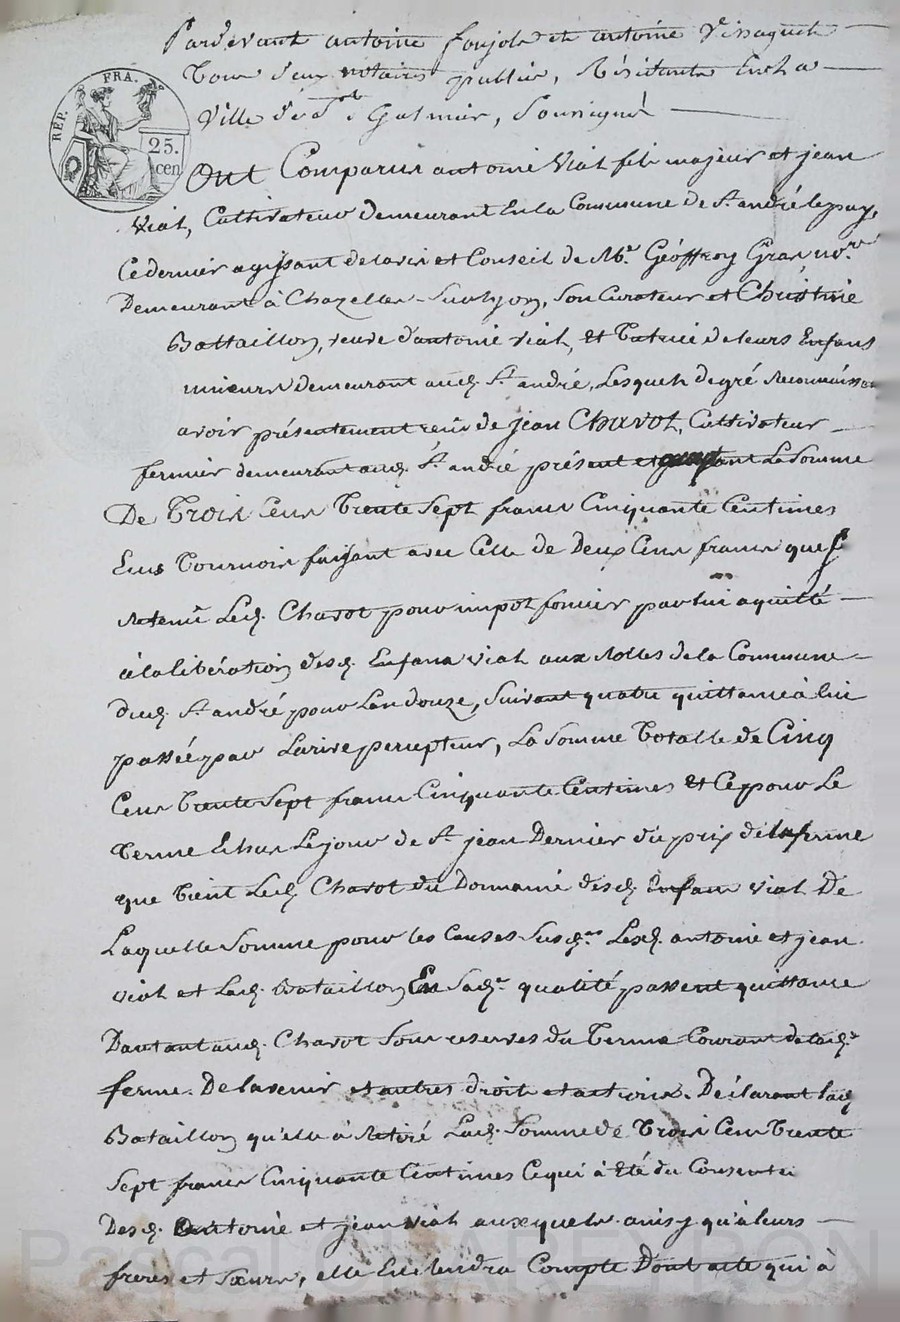 Pardevant antoine foujols et antoine Vissaguet
Tous deux notaires publics, Résidants En La
Ville de St Galmier, Soussignés
RÉP. FRA.
25. cen
Ont Comparus antoine Vial fils majeur et jean
Vial, Cultivateurs demeurant En la Commune de St andré le puy,
Ce dernier agissant de lavis et Conseil de Mr. Geoffroy Granjon
Demeurant à Chazelles-Sur lyon, Son Curateur et Christine
Battaillon, veuve d'antoine Vial, Et Tutrice de leurs Enfans
mineurs demeurant aud. St andré, Lesquels de gré Reconnaissent
avoir présentement reçu de jean Chavot, Cultivateur
fermier demeurant aud. St andré présent et La Somme
De Trois Cens Trente Sept francs Cinquante Centimes
Ecus Tournois faisant avec Celle de Deux Cens francs que
Retenu Led. Chavot pour impot foncier par lui aquitté
à la libération desd. Enfans Vial aux Rolles de la Commune
Dud. St andré pour Lan douze, Suivant quatre quittance à lui
passée par Larive percepteur, La Somme Totalle de Cinq
Cens Trente Sept francs Cinquante Centimes Et Ce pour Le
Terme Echus Le jour de St jean Dernier du prix de la ferme
que Tient Led. Chavot du Domaine desd. Enfans Vial De
Laquelle Somme pour les Causes Susd. Lesd. antoine et jean
Vial et Lad. Bataillon En Sad. qualité passent quittance
Dautant aud. Chavot Sous reserves du Terme Courant de lad.
ferme. De lavenir et autres droits et actions. Déclarant lad.
Bataillon qu'elle à Retiré Lad. Somme de Trois Cens Trente
Sept francs Cinquante Centimes Ce qui à Eté du Consentement
Desd. antoine et jean Vial auxquels ainsy qu'à leurs
freres et Sœurs, elle En tiendra Compte Dont acte qui à
Pascal CHAPEYRON